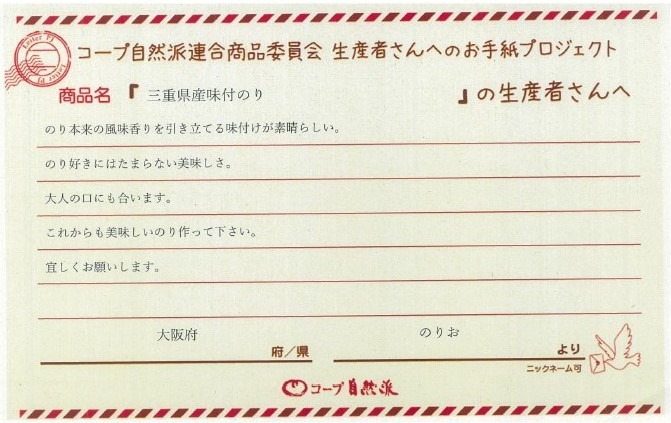 Letter PJ
Letter PJ
コープ自然派連合商品委員会 生産者さんへのお手紙プロジェクト
商品名『 三重県産味付のり 』の生産者さんへ
のり本来の風味香りを引き立てる味付けが素晴らしい。
のり好きにはたまらない美味しさ。
大人の口にも合います。
これからも美味しいのり作って下さい。
宜しくお願いします。
大阪府 府／県 のりお より
ニックネーム可
コープ自然派